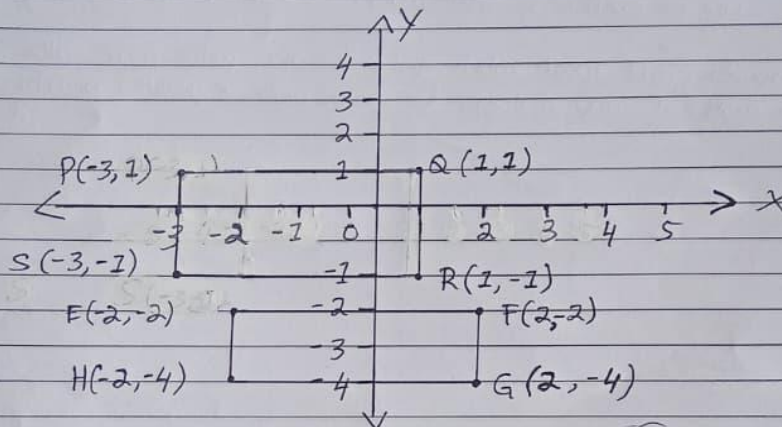 Y
4
3
2
P(-3, 1) 1 Q (1, 1)
X
-3 -2 -1 0 2 3 4 5
S (-3, -1) -1 R(1, -1)
E(-2, -2) -2 F(2, -2)
-3
H(-2, -4) -4 G (2, -4)